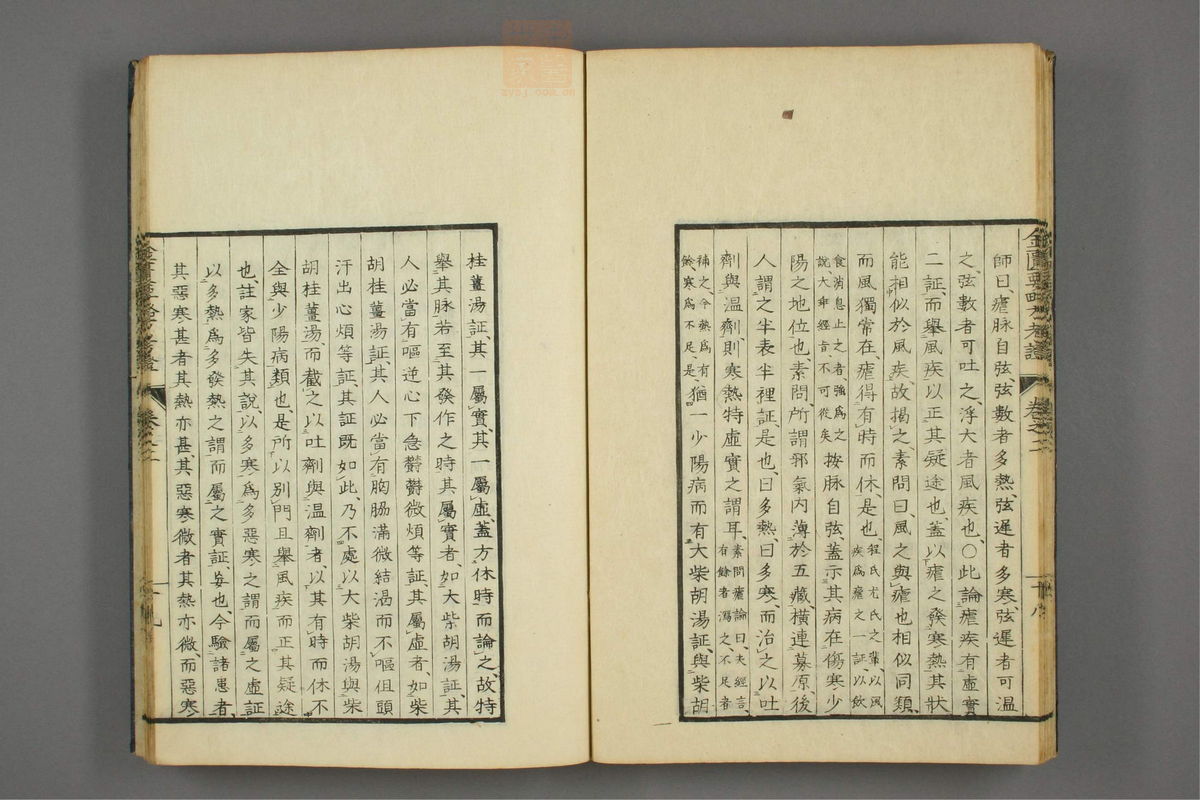 師曰、瘧脉自弦、弦數者多熱、弦遲者多寒、弦遲者可溫
之、弦數者可吐之、浮大者風疾也、○此論瘧疾有虛實
二証、而舉風疾以正其疑途也、蓋以瘧之發寒熱其狀
能相似於風疾、故揭之、素問曰、風之與瘧也相似同類、
而風獨常在、瘧得有時而休是也、程氏尤氏之輩以風疾爲瘧之一証、以飲
食消息止之者強爲之說、大乖經旨、不可從矣、按脉自弦、蓋示其病在傷寒少
陽之地位也、素問所謂邪氣內薄於五藏、橫連募原、後
人謂之半表半裡証、是也、曰多熱、曰多寒、而治之以吐
劑與溫劑、則寒熱特虛實之謂耳、素問瘧論曰、夫經言、有餘者瀉之、不足者
補之、今熱爲有餘、寒爲不足、是、猶一少陽病而有大柴胡湯証、與柴胡
桂薑湯証、其一屬實、其一屬虛、蓋方休時而論之、故特
舉其脉若至其發作之時、其屬實者、如大柴胡湯証、其
人必當有嘔逆心下急鬱鬱微煩等証、其屬虛者、如柴
胡桂薑湯証、其人必當有胸脇滿微結渴而不嘔但頭
汗出心煩等証、其証既如此、乃不處以大柴胡湯與柴
胡桂薑湯、而截之以吐劑與溫劑者、以其有時而休、不
全與少陽病類也、是所以別門且舉風疾而正其疑途
也、註家皆失其說、以多寒爲多惡寒之謂而屬之虛証
以多熱爲多發熱之謂而屬之實証、妄也、今驗諸患者、
其惡寒甚者其熱亦甚、其惡寒微者其熱亦微、而惡寒